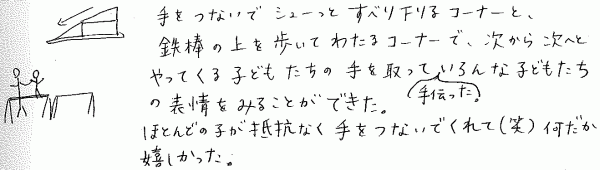 手をつないで シューっと すべり下りるコーナーと、
鉄棒の上を歩いてわたるコーナーで、次から次へと
やってくる子どもたちの手を取っていろんな子どもたち
(手伝った。)
の表情をみることができた。
ほとんどの子が抵抗なく手をつないでくれて(笑)何だか
嬉しかった。